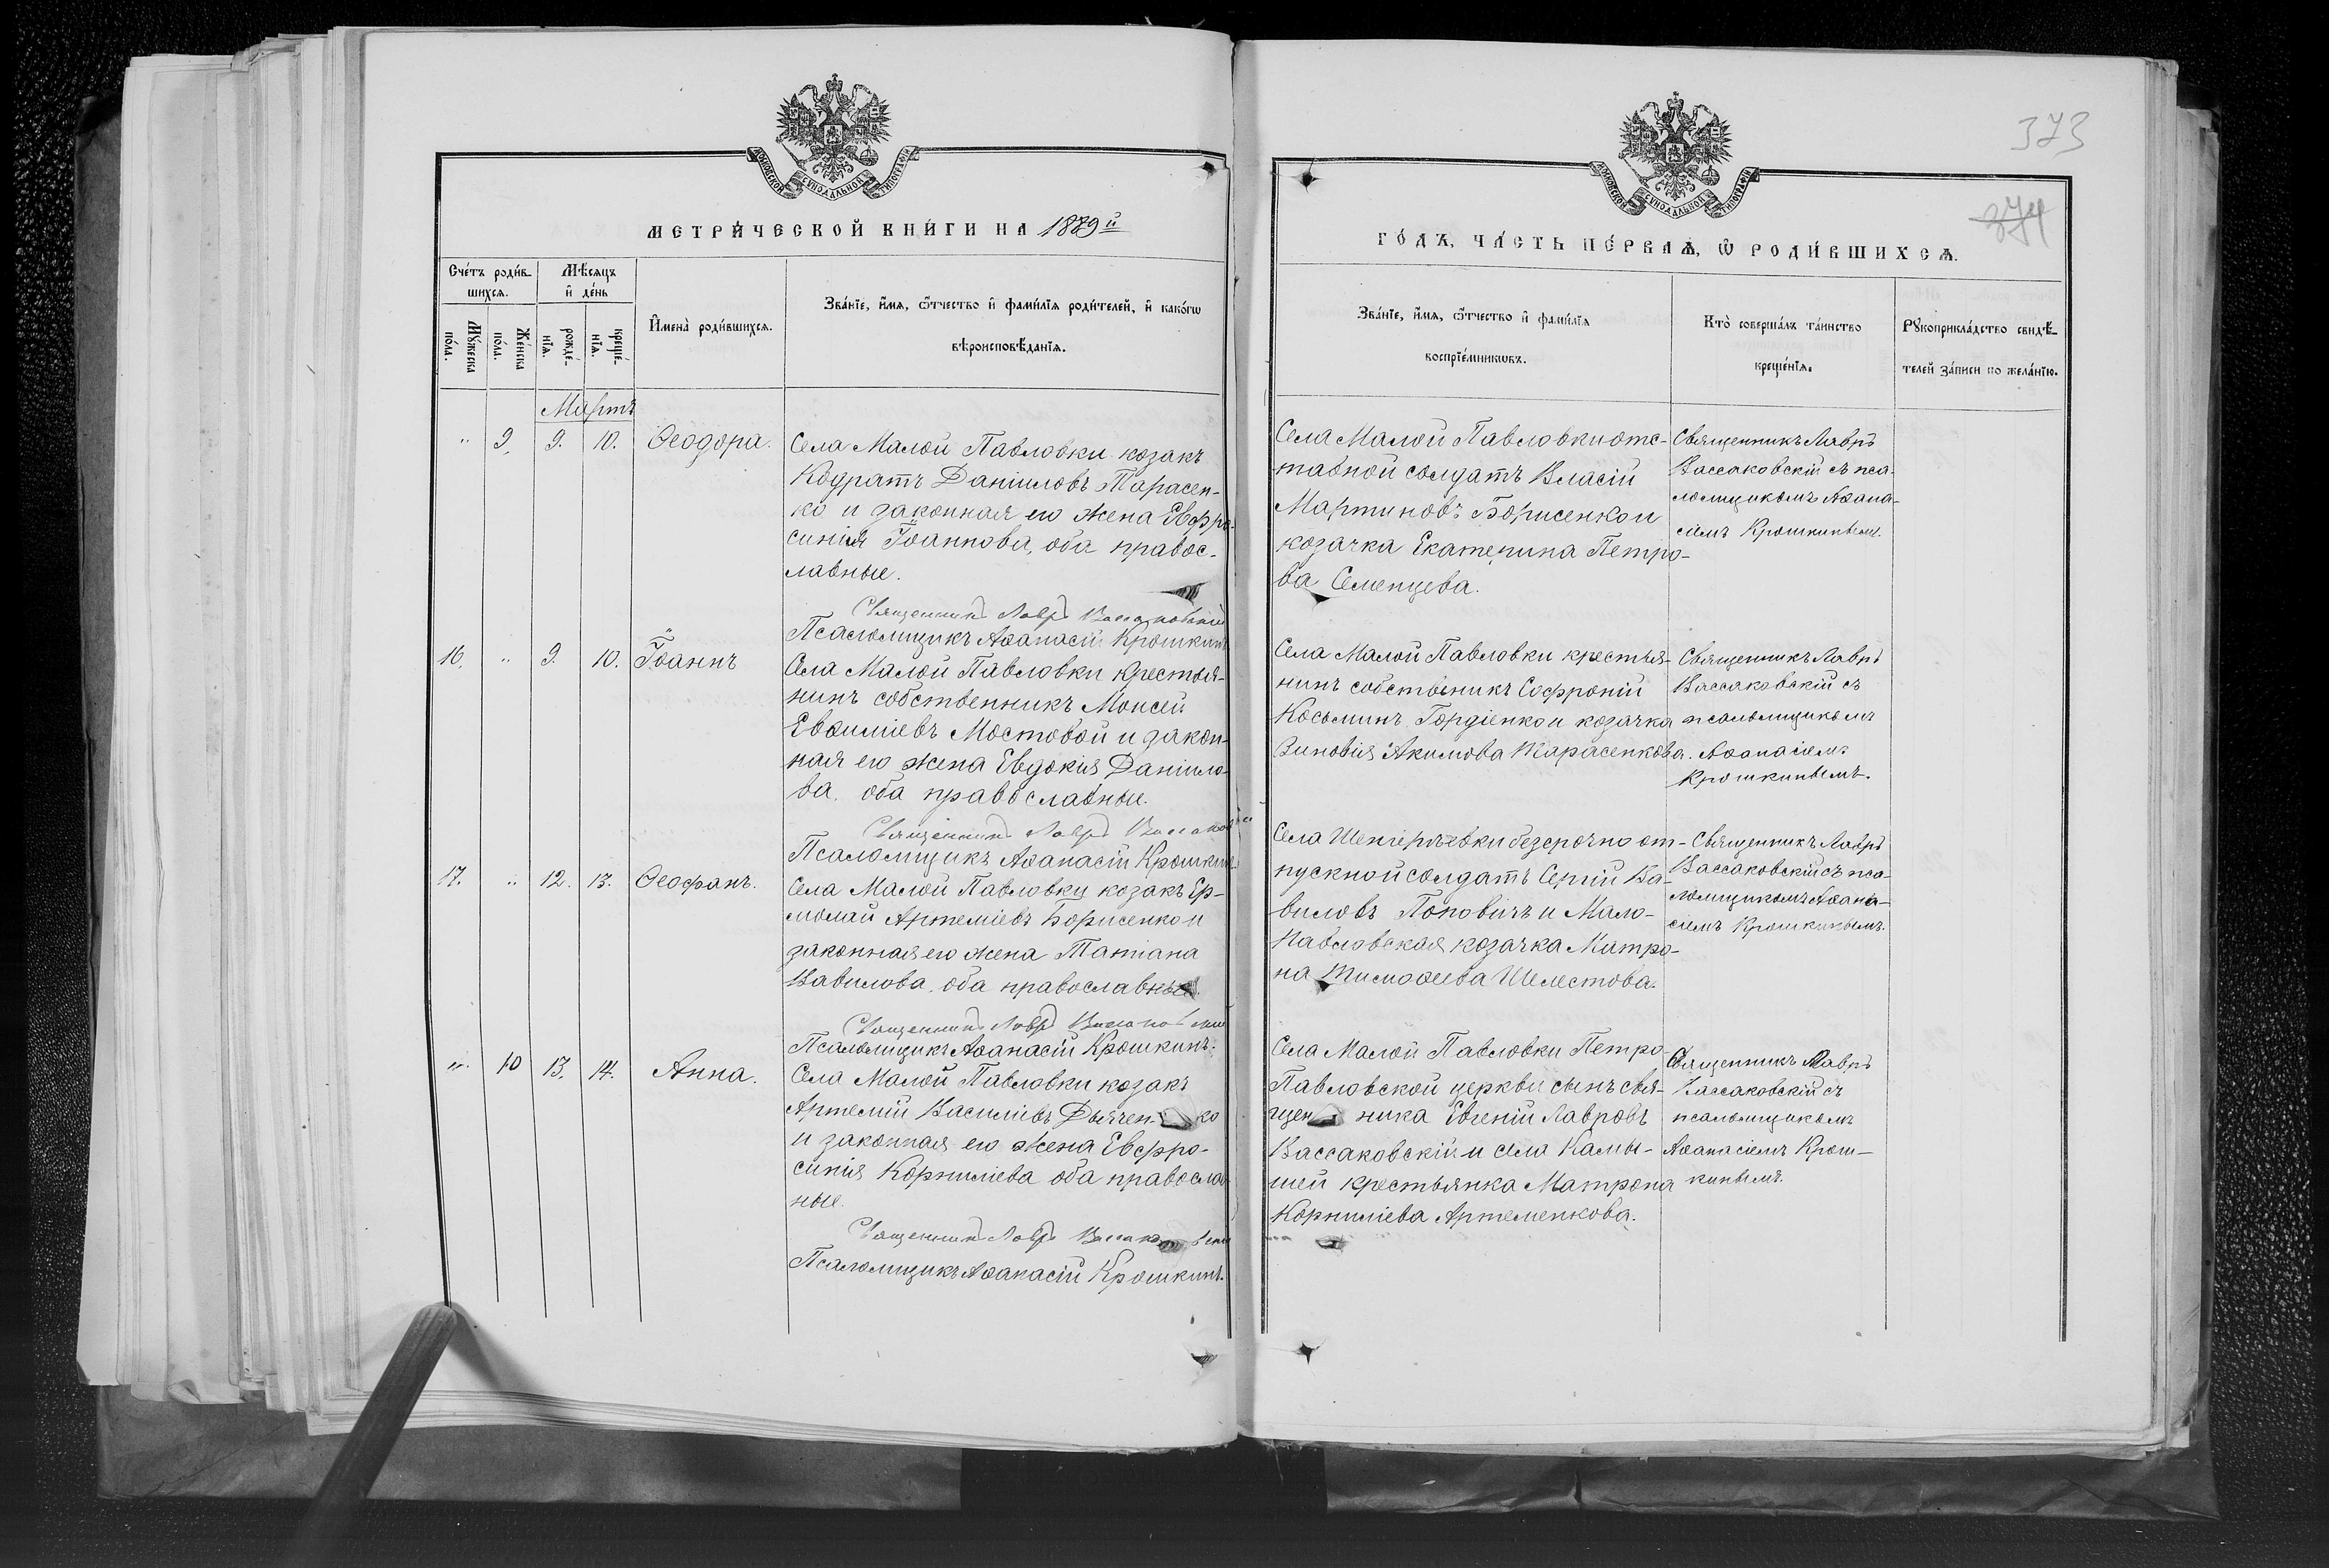 МОСКОВСКОЙ СѴНОДАЛЬНОЙ ТИПОГРАФІИ
МЕТРИ́ЧЕСКОЙ КНИ́ГИ НА 1889й
Сче́тъ роди́в-
шихся.
Мѣ́сяцъ
и҆ де́нь
Мꙋ́жеска по́ла.
Же́нска по́ла.
рожде́-
нїѧ.
креще́-
нїѧ.
И҆мена̀ роди́вшихсѧ.
Зва́нїе, и҆́мѧ, ѻ҆́тчество и҆ фамі́лїѧ роди́телей, и҆ како́гѡ
вѣроисповѣ́данїѧ.
Мартъ
" 9. 9. 10. Ѳеодора.
Села Малой Павловки козакъ
Кодратъ Даніиловъ Тарасен-
ко и законная его жена Евфро-
синія Іоаннова, оба правос-
лавные.
Священникъ Лавръ Вассаковскій
Псаломщикъ Аѳанасій Крошкинъ
16. " 9. 10. Іоаннъ
Села Малой Павловки крестья-
нинъ собственникъ Моисей
Евѳиміевъ Мостовой и закон-
ная его жена Евдокія Даніило-
ва, оба православные.
Священникъ Лавръ Вассаковскій
Псаломщикъ Аѳанасій Крошкинъ
17. " 12. 13. Ѳеофанъ.
Села Малой Павловки козакъ Ер-
молай Артеміевъ Борисенко и
законная его жена Татіана
Вавилова, оба православные.
Священникъ Лавръ Вассаковскій
Псаломщикъ Аѳанасій Крошкинъ.
" 10 13. 14. Анна.
Села Малой Павловки козакъ
Артемій Василіевъ Дьяченко
и законная его жена Евфро-
синія Корниліева оба православ-
ные.
Священникъ Лавръ Вассаковскій
Псаломщикъ Аѳанасій Крошкинъ.
373
374
МОСКОВСКОЙ СѴНОДАЛЬНОЙ ТИПОГРАФІИ
ГО́ДЪ, ЧА́СТЬ ПЕ́РВАѦ, Ѡ҆ РОДИ́ВШИХСѦ.
Зва́нїе, и҆́мѧ, ѻ҆́тчество и҆ фамі́лїѧ
воспрїе́мникѡвъ.
Кто̀ соверша́лъ та́инство
креще́нїѧ.
Рꙋкоприкла́дство свидѣ́-
телей за́писи по жела́нїю.
Села Малой Павловки отс-
тавной солдатъ Власій
Мартиновъ Борисенко и
козачка Екатерина Петро-
ва Семенцева.
Священникъ Лавръ
Вассаковскій съ пса-
ломщикомъ Аѳана-
сіемъ Крошкинымъ.
Села Малой Павловки крестья-
нинъ собственикъ Софроній
Косьминъ Гордіенко и козачка
Зиновія Акимова Тарасенкова.
Священникъ Лавръ
Вассаковскій съ
псаломщикомъ
Аѳанасіемъ
Крошкинымъ.
Села безсрочно от-
пускной солдатъ Сергій Ва-
виловъ Поповичъ и Мало-
павловская козачка Матро-
на Тимоѳеева Шелестова.
Священникъ Лавръ
Вассаковскій съ пса-
ломщикомъ Аѳана-
сіемъ Крошкинымъ.
Села Малой Павловки Петро-
Павловской церкви сынъ свя-
щенника Евгеній Лавровъ
Вассаковскій и села Камы-
шей крестьянка Матрона
Корниліева Артеменкова.
Священникъ Лавръ
Вассаковскій съ
псаломщикомъ
Аѳанасіемъ Крош-
кинымъ.